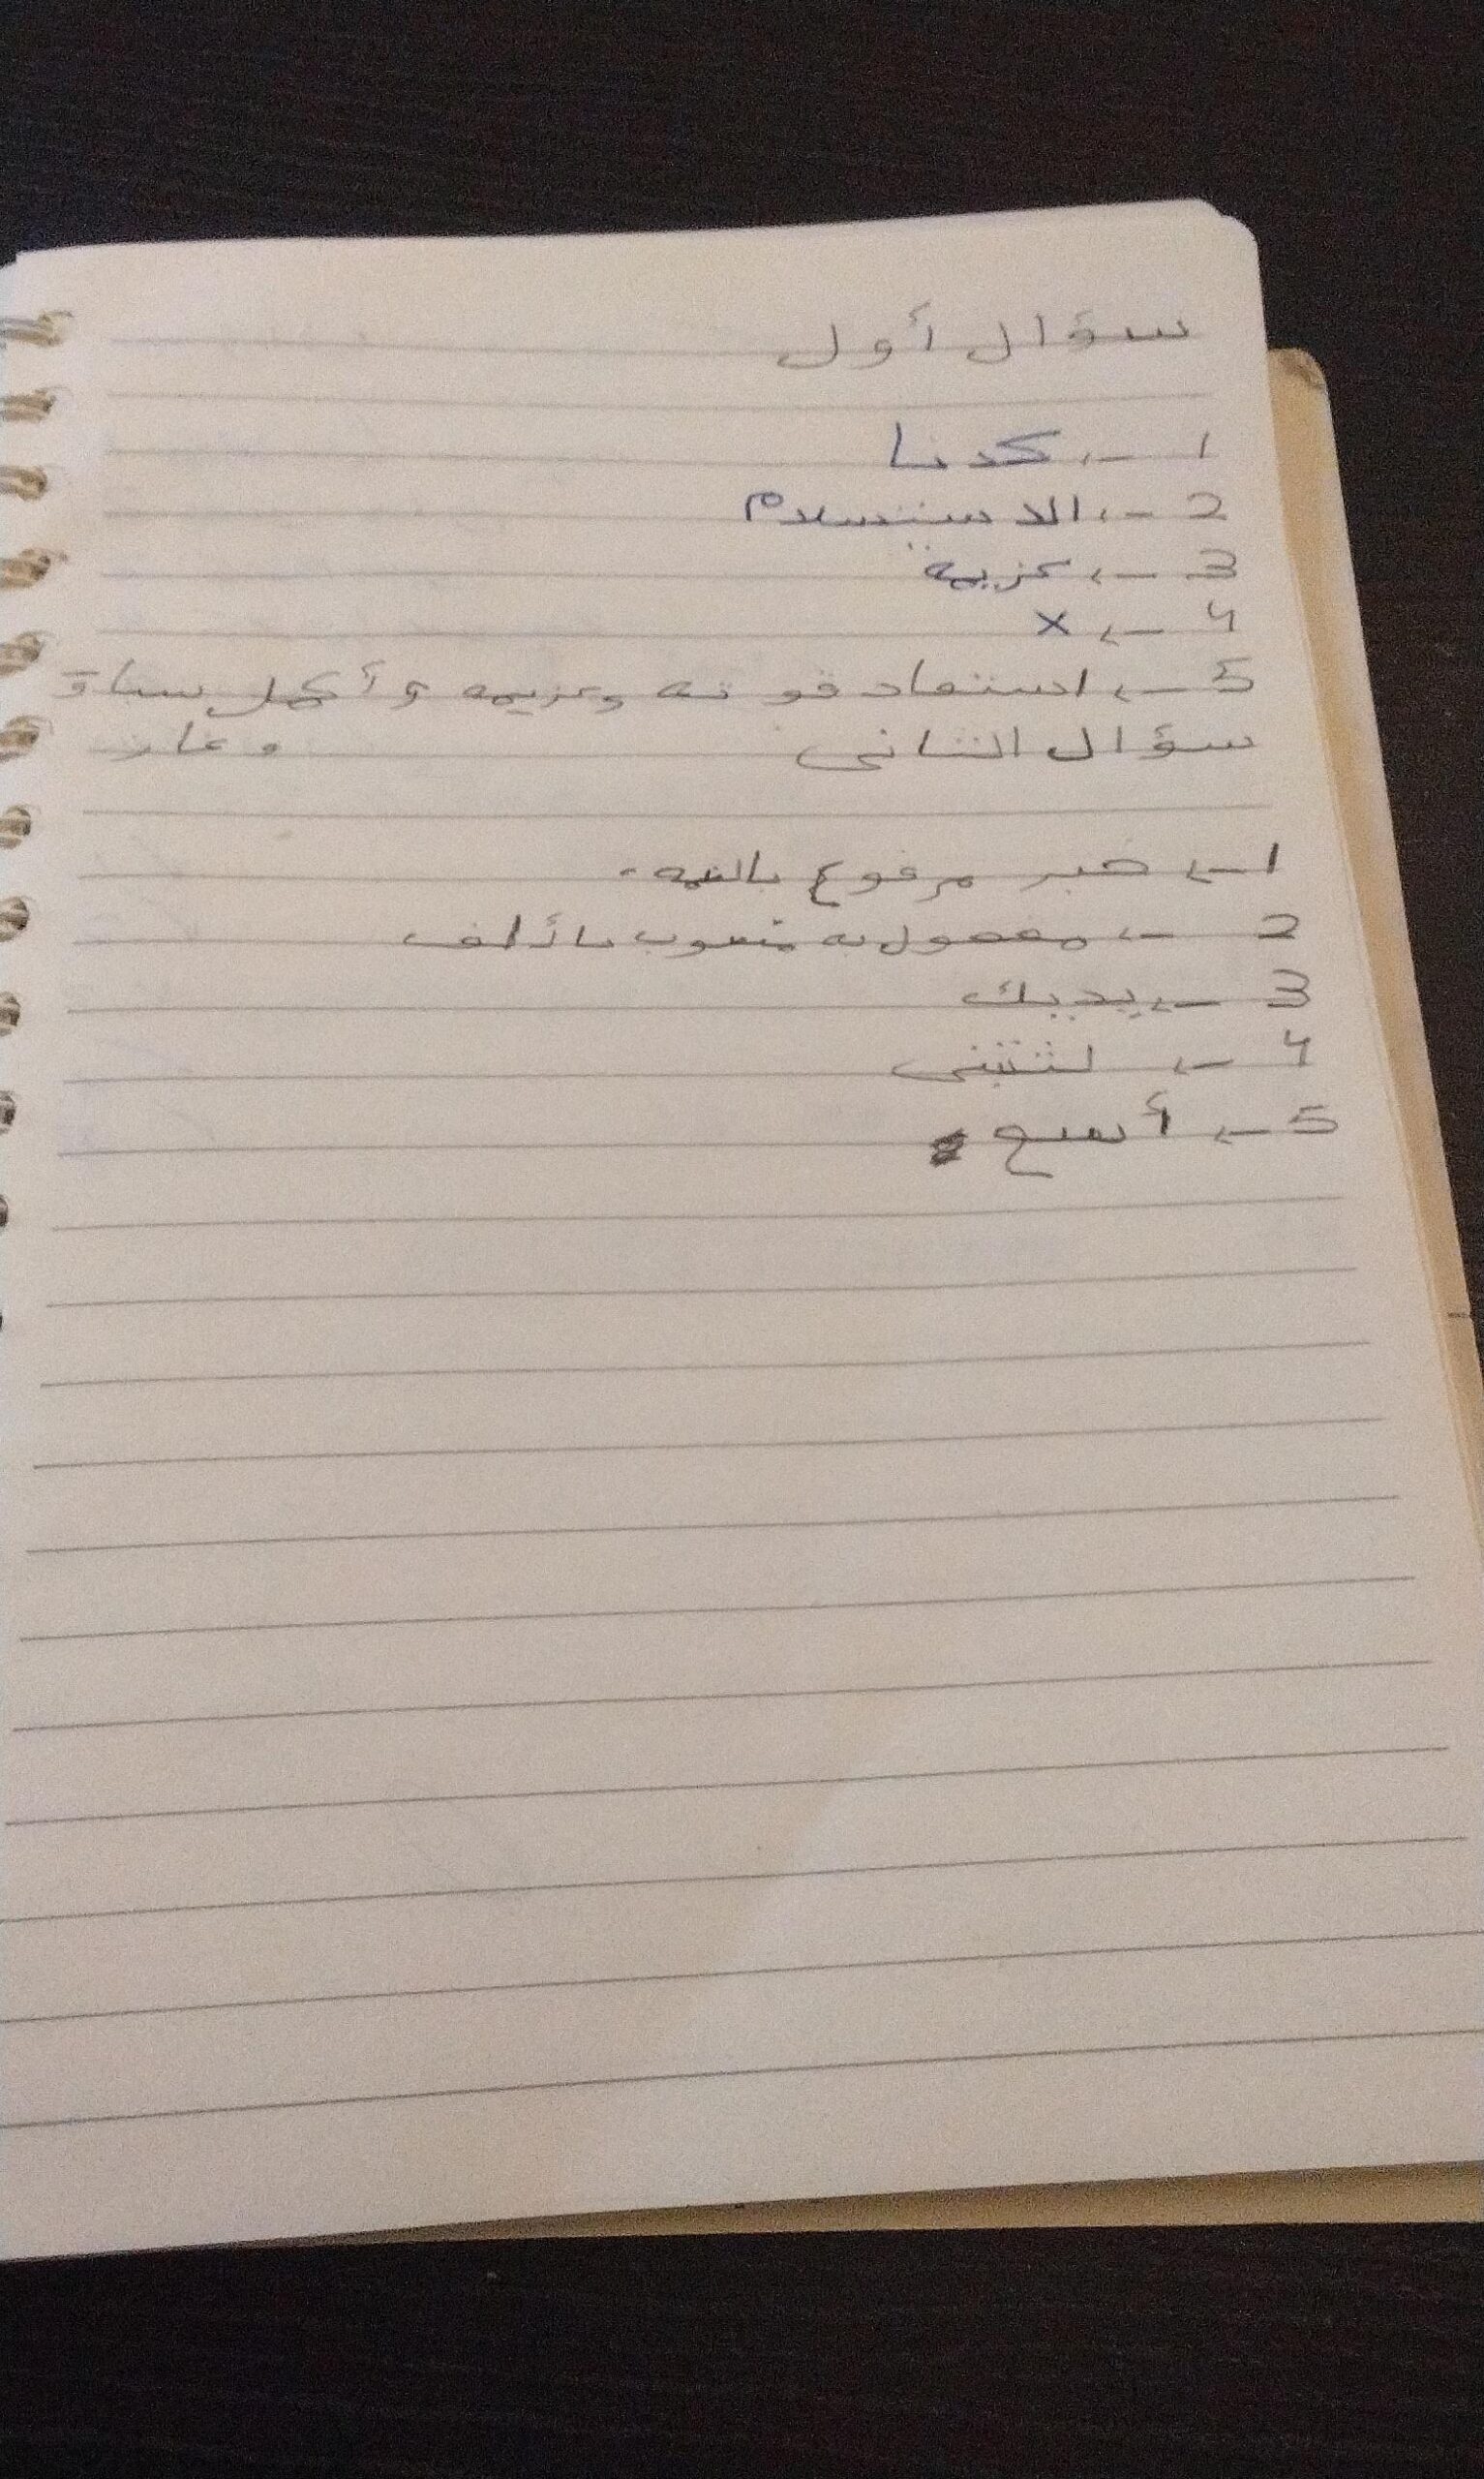 سؤال أول
1 ← كدنا
2 ← الاستسلام
3 ← عزيمة
4 ← ×
5 ← استعاد قوته وعزيمه وأكمل سباق
سؤال الثاني وعاز
1 ← خبر مرفوع بالضمه.
2 ← مفعول به منصوب بألف
3 ← يديك
4 ← لتثني
5 ← أصبح